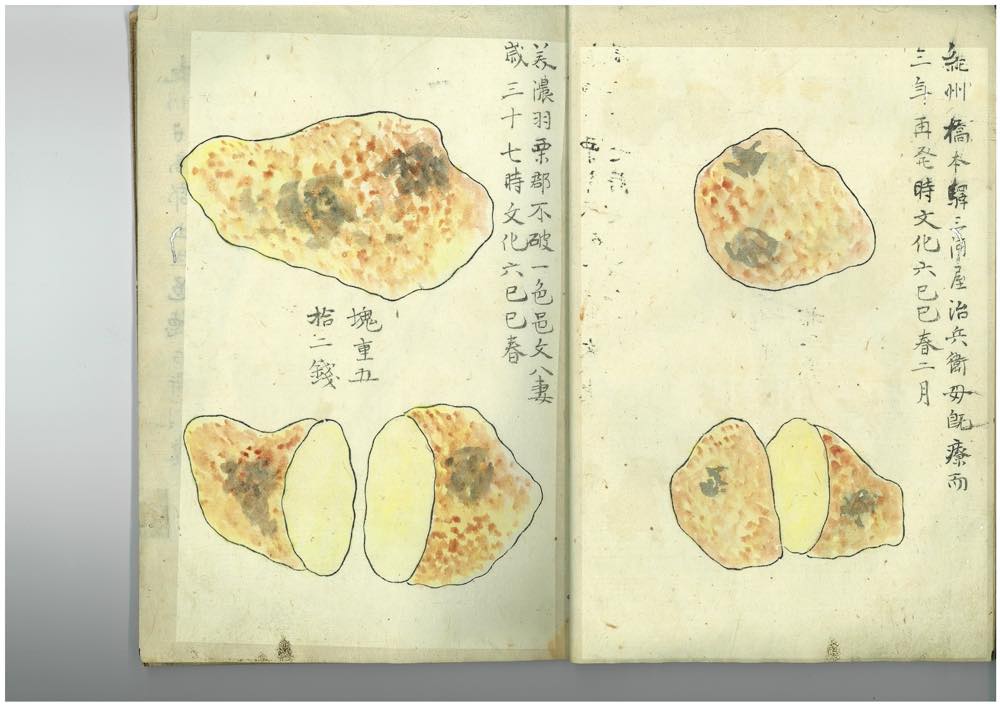 紀州橋本驛三浦屋治兵衛母既療而
三年再発時文化六己巳春二月
美濃羽栗郡不破一色邑文八妻
歳三十七時文化六己巳春
塊重五
拾二錢